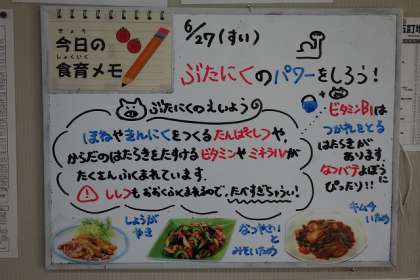 きょう
今日の
しょくいく
食育メモ
6/27(すい)
ぶたにくのパワーをしろう!
ぶたにくのえいよう
ほねやきんにくをつくるたんぱくしつや、
からだのはたらきをたすけるビタミンやミネラルが
たくさんふくまれています。
ししつもおおくふくまれるので、たべすぎちゅうい!
ビタミンB1は
つかれをとる
はたらきが
あります。
なつバテよぼうに
ぴったり!!
しょうが
やき
なつやさいと
みそいため
キムチ
いため